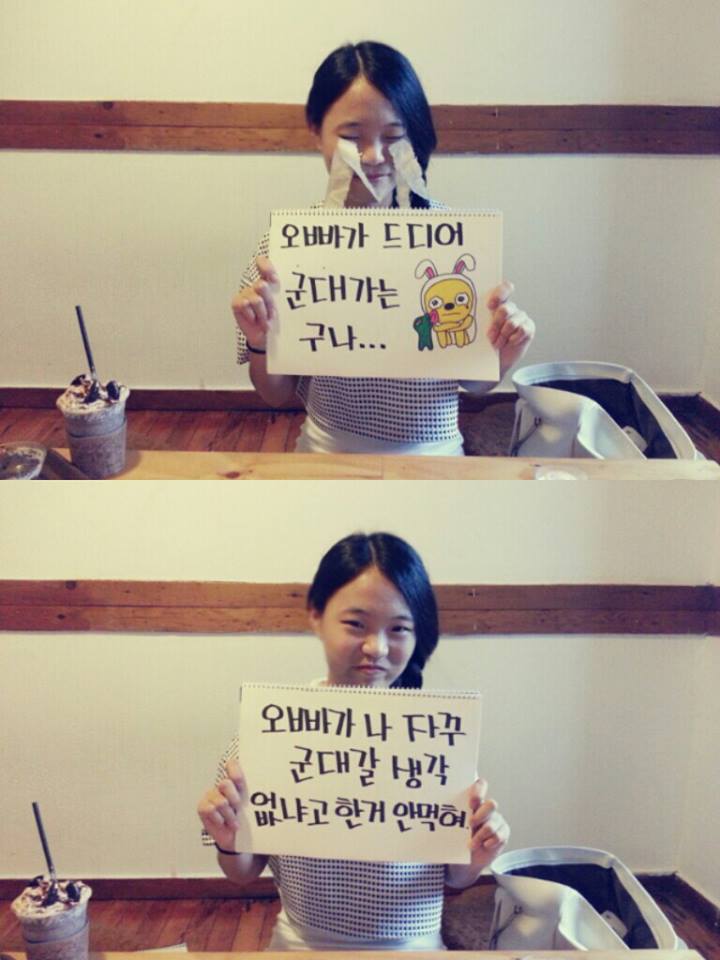 오빠가 드디어
군대가는
구나...
오빠가 나 자꾸
군대갈 생각
없냐고 한거 안먹혀.